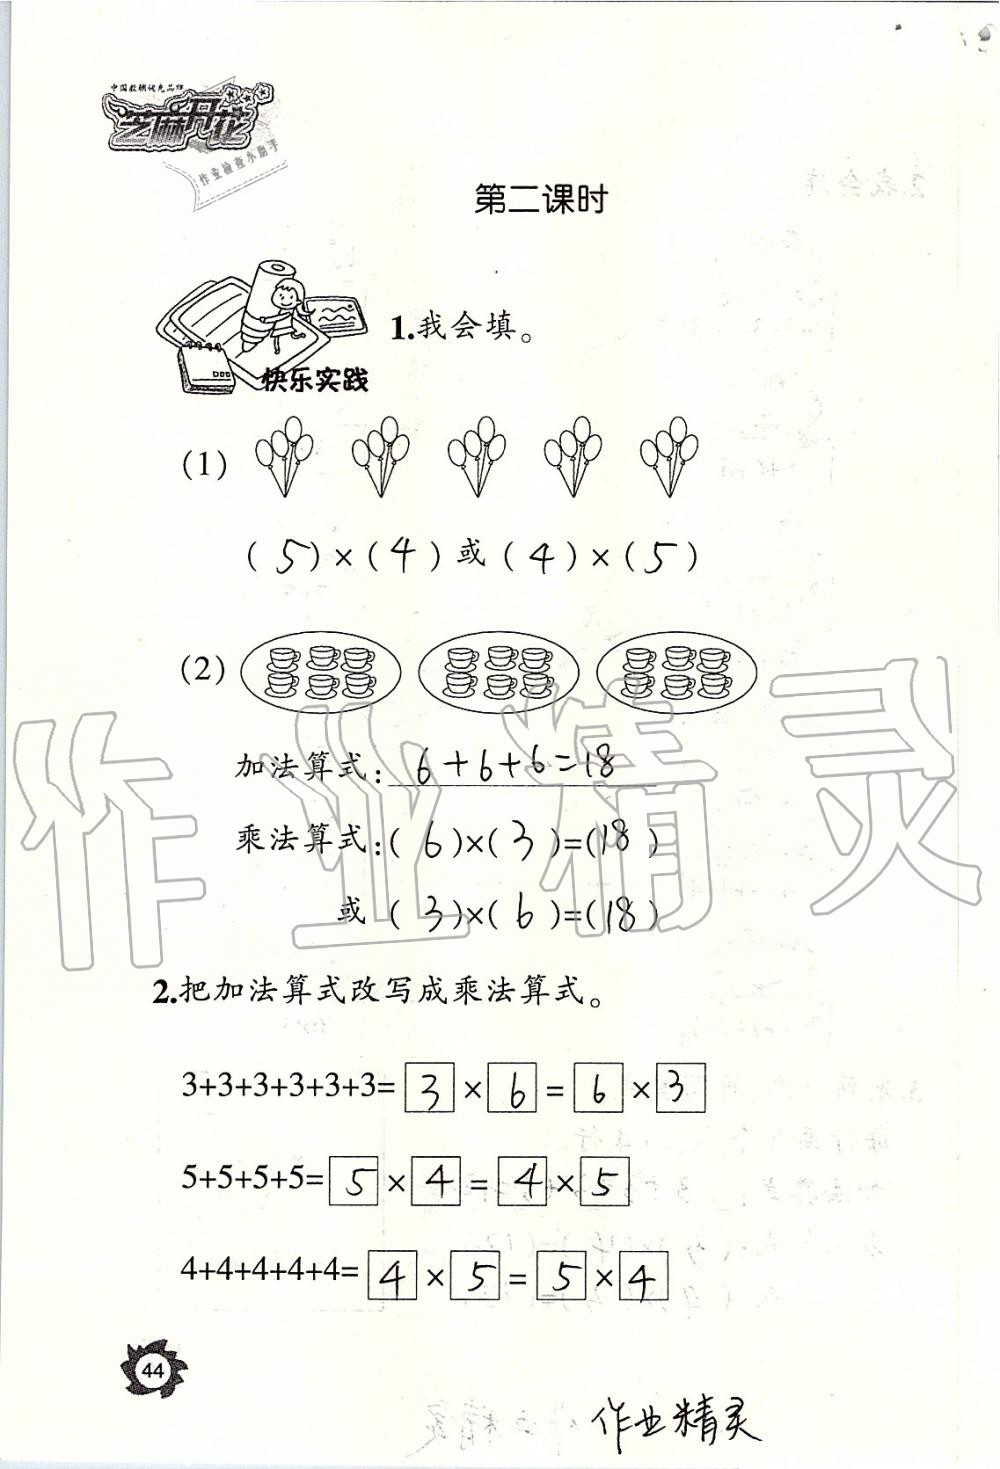 中国教辅优先品牌
芝麻开花
作业检查小助手
第二课时
快乐实践
1.我会填。
(1)
(5)×(4)或(4)×(5)
(2)
加法算式：6+6+6=18
乘法算式：(6)×(3)=(18)
或 (3)×(6)=(18)
2.把加法算式改写成乘法算式。
3+3+3+3+3+3=3×6=6×3
5+5+5+5=5×4=4×5
4+4+4+4+4=4×5=5×4
44
作业精灵
作业精灵